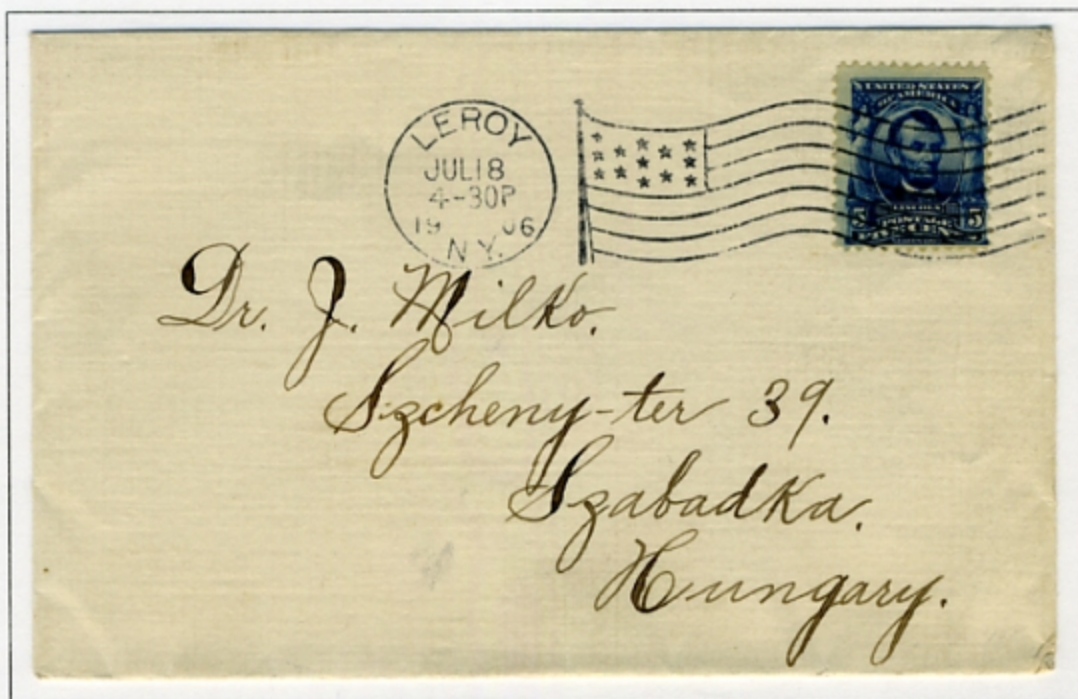 LEROY
JUL18
4-30P
19 06
N.Y.
UNITED STATES
OF AMERICA
5 POSTAGE 5
Dr. J. Milko.
Szcheny-ter 39.
Szabadka.
Hungary.